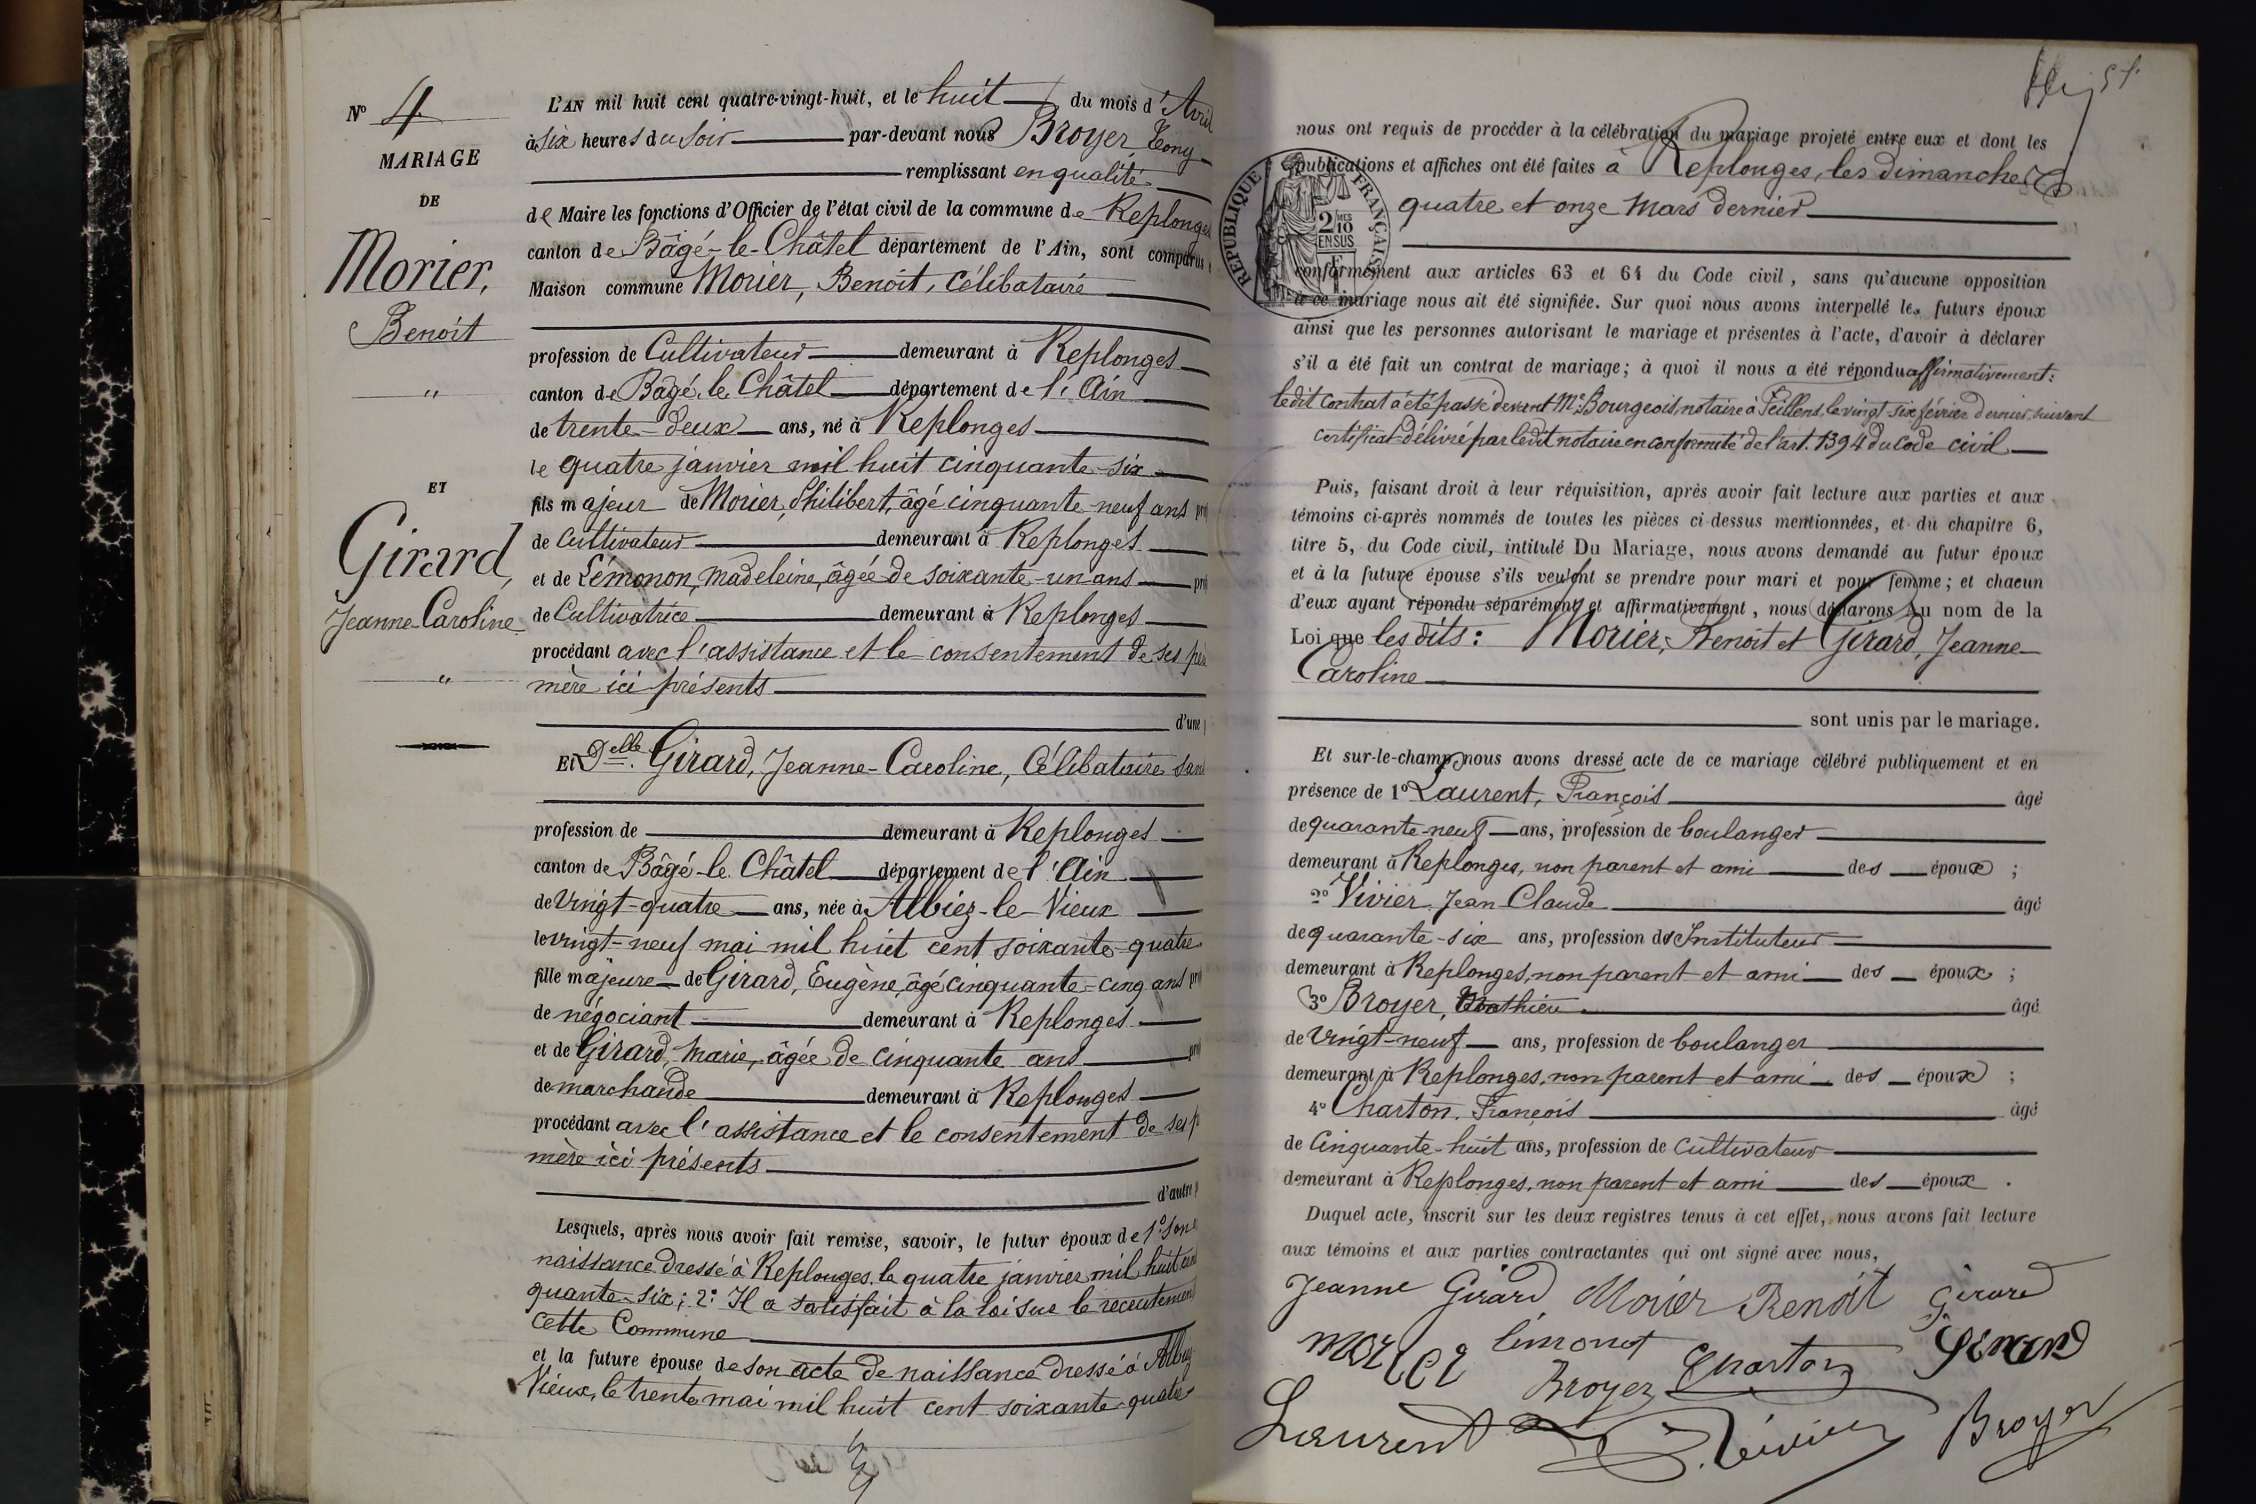 N° 4
MARIAGE
DE
Morier,
Benoit
"
ET
Girard,
Jeanne-Caroline
"
L'AN mil huit cent quatre-vingt-huit, et le huit du mois d'Avril
à six heures du Soir par-devant nous Broyer Tony
remplissant en qualité
de Maire les fonctions d'Officier de l'état civil de la commune de Replonges
canton de Bâgé-le-Châtel département de l'Ain, sont comparus
Maison commune Morier, Benoit, Célibataire
profession de Cultivateur demeurant à Replonges
canton de Bâgé-le-Châtel département de l'Ain
de trente-deux ans, né à Replonges
le quatre janvier mil huit cinquante-six
fils majeur de Morier, Philibert, âgé cinquante-neuf ans
de Cultivateur demeurant à Replonges
et de Lémonon, Madeleine, âgée de soixante-un ans
de Cultivatrice demeurant à Replonges
procédant avec l'assistance et le consentement de ses père
mère ici présents
d'une
Et Delle Girard, Jeanne-Caroline, Célibataire sans
profession de demeurant à Replonges
canton de Bâgé-le-Châtel département de l'Ain
de Vingt-quatre ans, née à Albiez-le-Vieux
le vingt-neuf mai mil huit cent soixante-quatre
fille majeure de Girard, Eugène, âgé cinquante-cinq ans
de négociant demeurant à Replonges
et de Girard, Marie, âgée de cinquante ans
de marchande demeurant à Replonges
procédant avec l'assistance et le consentement de ses p
mère ici présents
d'autre
Lesquels, après nous avoir fait remise, savoir, le futur époux de 1° son
naissance dressé à Replonges le quatre janvier mil huit cin
quante-six; 2° Il a satisfait à la loi sur le recrutement
cette Commune
et la future épouse de son acte de naissance dressé à Albiez
Vieux, le trente mai mil huit cent soixante-quatre
51
nous ont requis de procéder à la célébration du mariage projeté entre eux et dont les
publications et affiches ont été faites à Replonges, les dimanches
quatre et onze Mars dernier
RÉPUBLIQUE FRANÇAISE
2/10
EN SUS
conformément aux articles 63 et 64 du Code civil, sans qu'aucune opposition
à ce mariage nous ait été signifiée. Sur quoi nous avons interpellé les futurs époux
ainsi que les personnes autorisant le mariage et présentes à l'acte, d'avoir à déclarer
s'il a été fait un contrat de mariage; à quoi il nous a été répondu affirmativement:
ledit Contrat a été passé devant Me Bourgeois, notaire à Feillens, le vingt-six février dernier, suivant
certificat délivré par ledit notaire en conformité de l'art. 1394 du Code civil
Puis, faisant droit à leur réquisition, après avoir fait lecture aux parties et aux
témoins ci-après nommés de toutes les pièces ci-dessus mentionnées, et du chapitre 6,
titre 5, du Code civil, intitulé Du Mariage, nous avons demandé au futur époux
et à la future épouse s'ils veulent se prendre pour mari et pour femme; et chacun
d'eux ayant répondu séparément et affirmativement, nous déclarons au nom de la
Loi que les dits: Morier, Benoit et Girard, Jeanne
Caroline
sont unis par le mariage.
Et sur-le-champ nous avons dressé acte de ce mariage célébré publiquement et en
présence de 1° Laurent, François âgé
de quarante-neuf ans, profession de boulanger
demeurant à Replonges, non parent et ami des époux;
2° Vivier Jean Claude âgé
de quarante-six ans, profession de Instituteur
demeurant à Replonges, non parent et ami des époux;
3° Broyer, Mathieu âgé
de Vingt-neuf ans, profession de boulanger
demeurant à Replonges, non parent et ami des époux;
4° Charton, François âgé
de Cinquante-huit ans, profession de Cultivateur
demeurant à Replonges, non parent et ami des époux.
Duquel acte, inscrit sur les deux registres tenus à cet effet, nous avons fait lecture
aux témoins et aux parties contractantes qui ont signé avec nous,
Jeanne Girard Morier Benoit Girard
morier Limonot Girard
Broyer Charton
Laurent Vivier Broyer